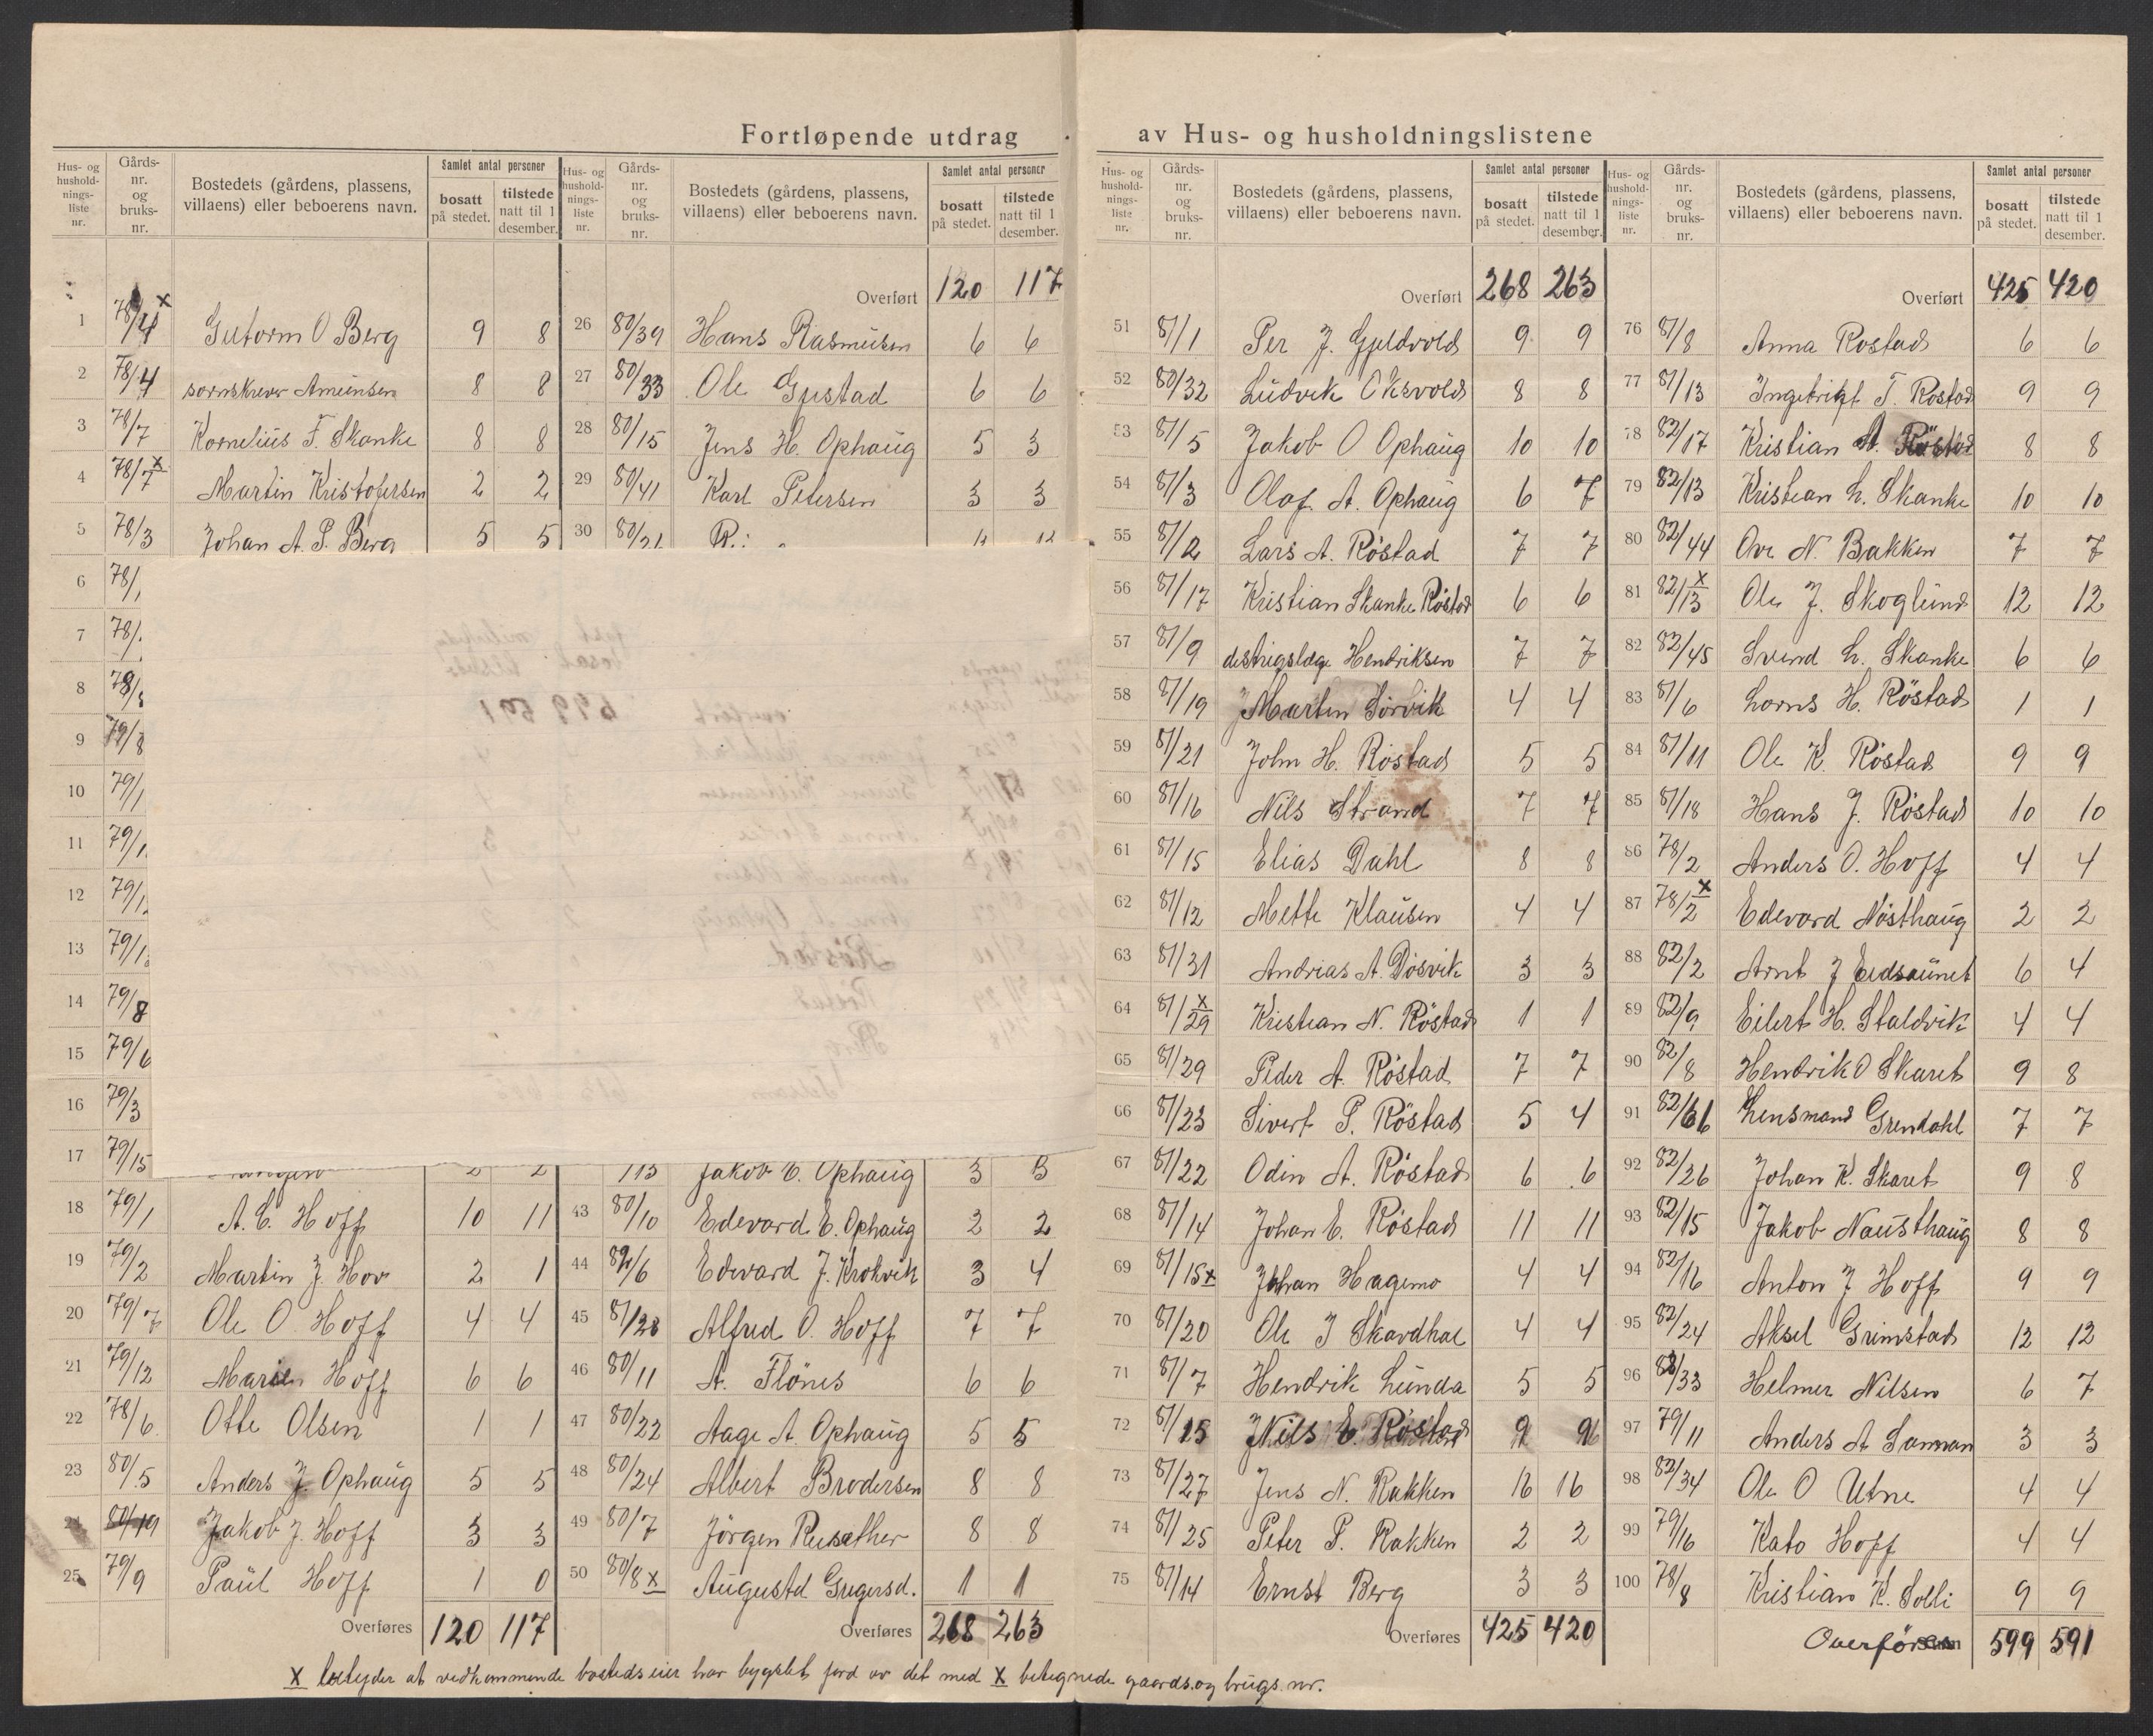 Fortløpende utdrag av Hus- og husholdningslistene
Hus- og husholdningsliste nr. Gårds-nr. og bruks-nr. Bostedets (gårdens, plassens, villaens) eller beboerens navn. Samlet antal personer bosatt på stedet. tilstede natt til 1 desember.
1 78/4 x Gutorm O Berg 9 8
2 78/4 sornskrever Amundsen 8 8
3 78/7 Kornelius F. Skanke 8 8
4 78/7 x Martin Kristofersen 2 2
5 78/3 Johan A. P. Berg 5 5
6 78/
7 78/
8 78/
9 79/8
10 79/1
11 79/1
12 79/1
13 79/1
14 79/8
15 79/6
16 79/3
17 79/15 2 2
18 79/1 A. C. Hoff 10 11
19 79/2 Martin J. Hov 2 1
20 79/7 Ole O. Hoff 4 4
21 79/12 Marien Hoff 6 6
22 78/6 Otte Olsen 1 1
23 80/5 Anders J. Ophaug 5 5
24 80/19 Jakob J. Hoff 3 3
25 79/9 Paul Hoff 1 0
Overføres 120 117
Hus- og husholdningsliste nr. Gårds-nr. og bruks-nr. Bostedets (gårdens, plassens, villaens) eller beboerens navn. Samlet antal personer bosatt på stedet. tilstede natt til 1 desember.
Overført 120 117
26 80/39 Hans Rasmusen 6 6
27 80/33 Ole Gustad 6 6
28 80/15 Jens H. Ophaug 5 3
29 80/41 Karl Petersen 3 3
30 80/21
Jakob E. Ophaug 3 3
43 80/10 Edevard E. Ophaug 2 2
44 82/6 Edevard J. Krokvik 3 4
45 81/28 Alfred O. Hoff 7 7
46 80/11 A. Flönes 6 6
47 80/22 Aage A. Ophaug 5 5
48 80/24 Albert Brodersen 8 8
49 80/7 Jörgen Rusether 8 8
50 80/8 x Augusta Gregersd. 1 1
Overføres 268 263
Hus- og husholdningsliste nr. Gårds-nr. og bruks-nr. Bostedets (gårdens, plassens, villaens) eller beboerens navn. Samlet antal personer bosatt på stedet. tilstede natt til 1 desember.
Overført 268 263
51 81/1 Per J. Gjeldvold 9 9
52 80/32 Ludvik Oksvold 8 8
53 81/5 Jakob O Ophaug 10 10
54 81/3 Olaf. A. Ophaug 6 7
55 81/2 Lars A. Röstad 7 7
56 81/17 Kristian Skanke Röstad 6 6
57 81/9 distrigslæge Hendriksen 7 7
58 81/19 Martin Sörvik 4 4
59 81/21 John H. Röstad 5 5
60 81/16 Nils Strand 7 7
61 81/15 Elias Dahl 8 8
62 81/12 Mette Klausen 4 4
63 81/31 Andrias A. Dösvik 3 3
64 81/29 x Kristian N. Röstad 1 1
65 81/29 Peder A. Röstad 7 7
66 81/23 Sivert P. Röstad 5 4
67 81/22 Odin A. Röstad 6 6
68 81/14 Johan E. Röstad 11 11
69 81/15 x Johan Hagemo 4 4
70 81/20 Ole J Skardhal 4 4
71 81/7 Hendrik Lunda 5 5
72 81/25 Nils E. Röstad 9 9
73 81/27 Jens N. Rakken 16 16
74 81/25 Peter P. Rakken 2 2
75 81/14 Ernst Berg 3 3
Overføres 425 420
Hus- og husholdningsliste nr. Gårds-nr. og bruks-nr. Bostedets (gårdens, plassens, villaens) eller beboerens navn. Samlet antal personer bosatt på stedet. tilstede natt til 1 desember.
Overført 425 420
76 81/8 Anna Rostad 6 6
77 81/13 Ingebrigt T. Rostad 9 9
78 82/17 Kristian A. Röstad 8 8
79 82/13 Kristian L. Skanke 10 10
80 82/44 Ove N. Bakken 7 7
81 82/13 x Ole J. Skoglund 12 12
82 82/45 Svend L. Skanke 6 6
83 81/6 Lorns H. Röstad 1 1
84 81/11 Ole K. Röstad 9 9
85 81/18 Hans J. Röstad 10 10
86 78/2 Anders O. Hoff 4 4
87 78/2 x Edevard Nösthaug 2 2
88 82/2 Arnt J Eidsaunet 6 4
89 82/9 Eilert H. Staldvik 4 4
90 82/8 Hendrik O Skaret 9 8
91 82/61 Lensmand Grendahl 7 7
92 82/26 Johan K. Skaret 9 8
93 82/15 Jakob Nausthaug 8 8
94 82/16 Anton J Hoff 9 9
95 82/24 Aksel Grimstad 12 12
96 82/33 Helmer Nilsen 6 7
97 79/11 Anders A Sannan 3 3
98 82/34 Ole O Utne 4 4
99 79/16 Kato Hoff 4 4
100 78/8 Kristian K. Solli 9 9
Overföres 599 591
X betyder at vedkommende bosteds eier har bygslet jord av det med X betegnede gaards.og brugs.nr.